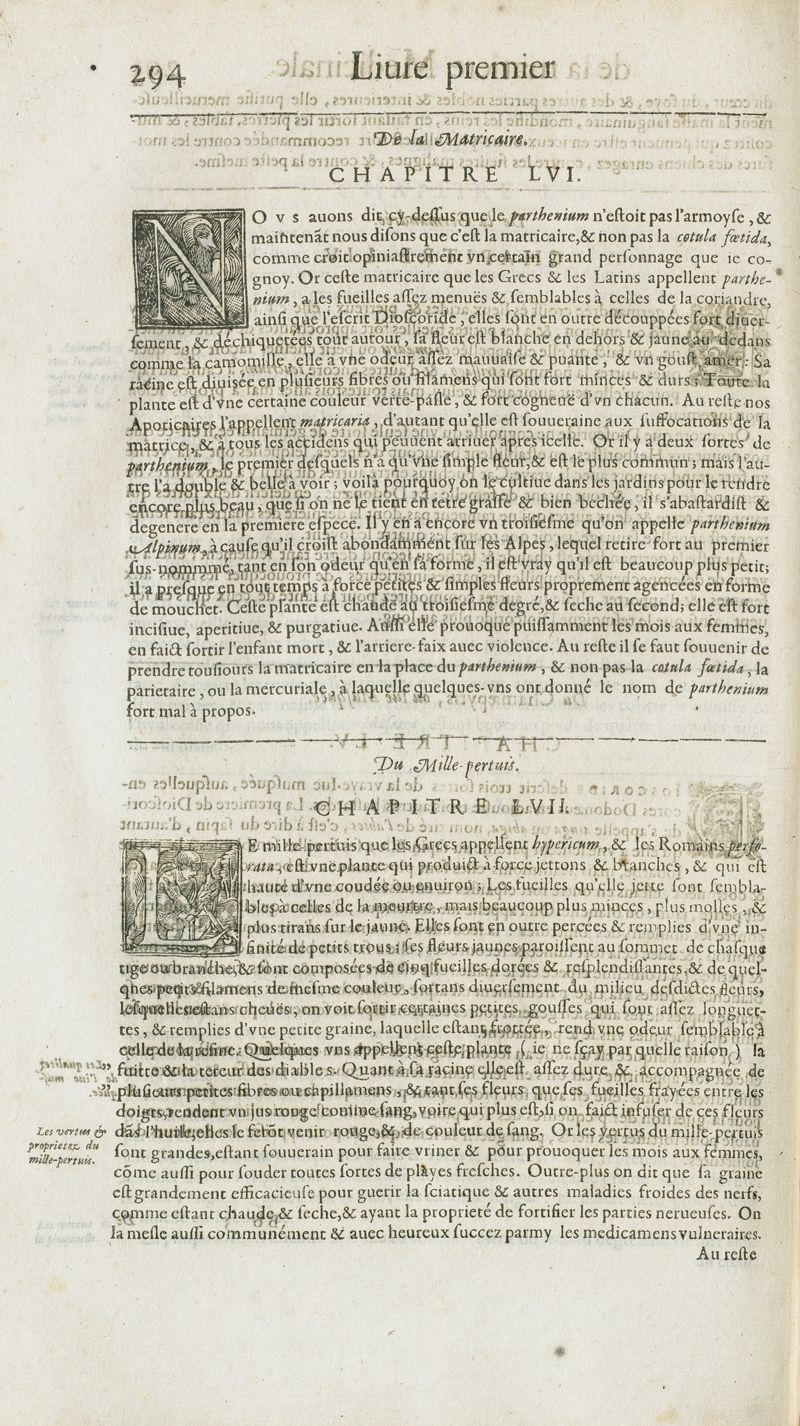 294 Liure premier
De la Matricaire.
CHAPITRE LVI.
NOVS auons dit cy-deſſus que le parthenium n'eſtoit pas l'armoyſe, &
maintenãt nous diſons que c'eſt la matricaire, & non pas la cotula fœtida,
comme croit opiniaſtrement vn certain grand perſonnage que ie co-
gnoy. Or ceſte matricaire que les Grecs & les Latins appellent parthe-
nium, a les fueilles aſſez menuës & ſemblables à celles de la coriandre,
ainſi que l'eſcrit Dioſcoride, elles ſont en outre découppées fort diuer-
ſement, & déchiquetées tout autour, ſa fleur eſt blanche en dehors & jaune au dedans
comme la camomille, elle a vne odeur aſſez mauuaiſe & puante, & vn gouſt amer: Sa
racine eſt diuisée en pluſieurs fibres ou filamens qui ſont fort minces & durs; Toute la
plante eſt d'vne certaine couleur verte-paſle, & fort cogneuë d'vn chacun. Au reſte nos
Apoticaires l'appellent matricaria, d'autant qu'elle eſt ſouueraine aux ſuffocations de la
matrice, & à tous les accidens qui peuuent arriuer apres icelle. Or il y a deux ſortes de
parthenium, le premier deſquels n'a qu'vne ſimple fleur, & eſt le plus commun; mais l'au-
tre l'a double & belle à voir; voilà pourquoy on le cultiue dans les jardins pour le rendre
encore plus beau, que ſi on ne le tient en terre graſſe & bien bechée, il s'abaſtardiſt &
degenere en la premiere eſpece. Il y en a encore vn troiſieſme qu'on appelle parthenium
Alpinum, à cauſe qu'il croiſt abondamment ſur les Alpes, lequel retire fort au premier
ſus-nommé, tant en ſon odeur qu'en ſa forme, il eſt vray qu'il eſt beaucoup plus petit;
il a preſque en tout temps à force petites & ſimples fleurs proprement agencées en forme
de mouchet. Ceſte plante eſt chaude au troiſieſme degré, & ſeche au ſecond; elle eſt fort
inciſiue, aperitiue, & purgatiue. Auſſi elle prouoque puiſſamment les mois aux femmes,
en faict ſortir l'enfant mort, & l'arriere-faix auec violence. Au reſte il ſe faut ſouuenir de
prendre touſiours la matricaire en la place du parthenium, & non pas la cotula fœtida, la
parietaire, ou la mercuriale, à laquelle quelques-vns ont donné le nom de parthenium
fort mal à propos.
Du Mille-pertuis.
CHAPITRE LVII.
LE mille-pertuis que les Grecs appellent hypericum, & les Romains perfo-
rata, eſt vne plante qui produict à force jettons & branches, & qui eſt
haute d'vne coudée ou enuiron; Les fueilles qu'elle jette ſont ſembla-
bles à celles de la meurtre, mais beaucoup plus minces, plus molles, &
plus tirans ſur le jaune. Elles ſont en outre percées & remplies d'vne in-
finité de petits trous; ſes fleurs jaunes paroiſſent au ſommet de chaſque
tige ou branche, & ſont composées de cinq fueilles dorées & reſplendiſſantes, & de quel-
ques petits filamens de meſme couleur, ſortans diuerſement du milieu deſdictes fleurs,
leſquelles eſtans cheuës, on voit ſortir certaines petites gouſſes qui ſont aſſez longuet-
tes, & remplies d'vne petite graine, laquelle eſtant frottée, rend vne odeur ſemblable à
celle de la reſine. Quelques vns appellent ceſte plante (ie ne ſçay par quelle raiſon) la
fuitte & la terreur des diables. Quant à ſa racine elle eſt aſſez dure, & accompagnée de
pluſieurs petites fibres ou capillamens, & tant ſes fleurs, que ſes fueilles frayées entre les
doigts, rendent vn jus rouge comme ſang, voire qui plus eſt, ſi on faict infuſer de ces fleurs
dãs l'huile, elles le ferõt venir rouge, & de couleur de ſang. Or les vertus du mille-pertuis
ſont grandes, eſtant ſouuerain pour faire vriner & pour prouoquer les mois aux femmes,
cõme auſſi pour ſouder toutes ſortes de playes freſches. Outre-plus on dit que ſa graine
eſt grandement efficacieuſe pour guerir la ſciatique & autres maladies froides des nerfs,
comme eſtant chaude & ſeche, & ayant la proprieté de fortifier les parties nerueuſes. On
la meſle auſſi communément & auec heureux ſuccez parmy les medicamens vulneraires.
Les vertus &
proprietez du
mille-pertuis.
Au reſte